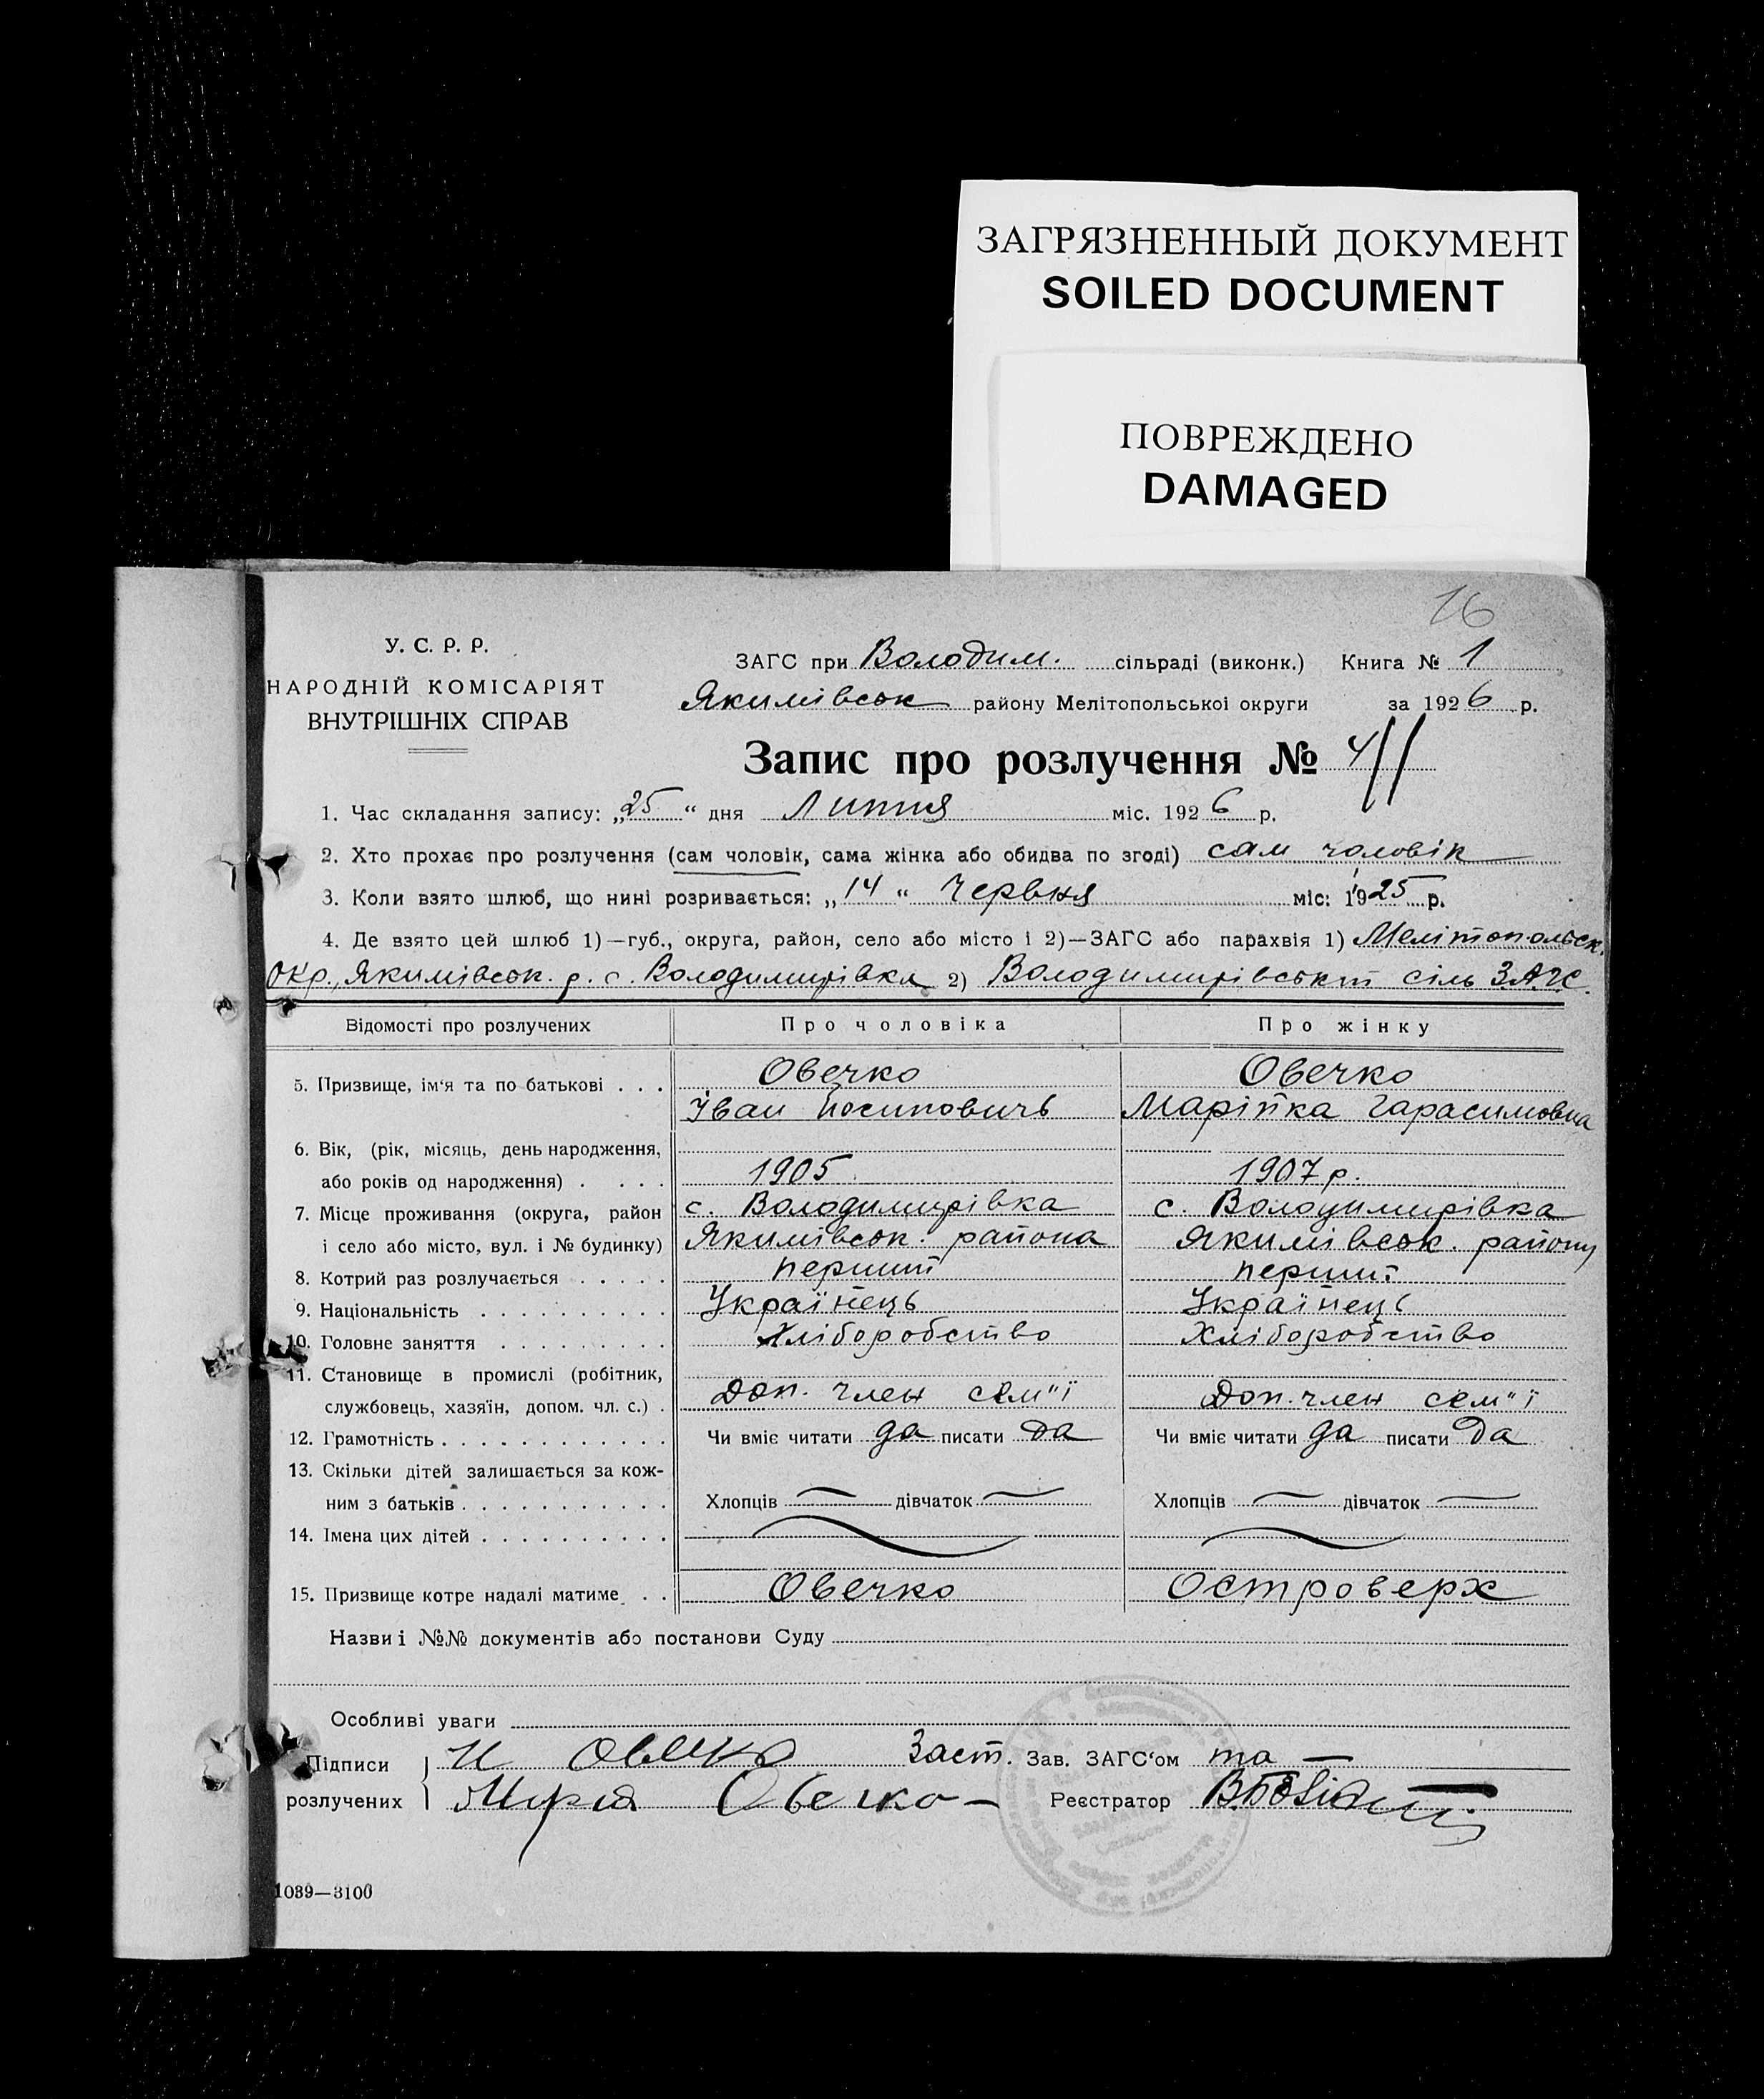 ЗАГРЯЗНЕННЫЙ ДОКУМЕНТ
SOILED DOCUMENT
ПОВРЕЖДЕНО
DAMAGED
16
У. С. Р. Р.
НАРОДНІЙ КОМІСАРІЯТ
ВНУТРІШНІХ СПРАВ
ЗАГС при Володим. сільраді (виконк.) Книга № 1
Якимівськ району Мелітопольської округи за 1926 р.
Запис про розлучення № 4
1. Час складання запису: „25“ дня Липня міс. 1926 р.
2. Хто прохає про розлучення (сам чоловік, сама жінка або обидва по згоді) сам чоловік
3. Коли взято шлюб, що нині розривається: „14“ Червня міс: 1925 р.
4. Де взято цей шлюб 1)—губ., округа, район, село або місто і 2)—ЗАГС або парахвія 1) Мелітопольськ.
окр., Якимівськ. р. с. Володимирівка 2) Володимирівський сіль ЗАГС.
Відомості про розлучених Про чоловіка Про жінку
5. Призвище, ім'я та по батькові . . . Овечко Овечко
Іван Йосиповичь Марійка Гарасимовна
6. Вік, (рік, місяць, день народження,
або років од народження) . . . . 1905 1907 р.
7. Місце проживання (округа, район с. Володимирівка с. Володимирівка
і село або місто, вул. і № будинку) Якимівськ. района Якимівськ. району
8. Котрий раз розлучається . . . . . перший перший
9. Національність . . . . . . . . . . Українець Українець
10. Головне заняття . . . . . . . . . Хліборобство Хліборобство
11. Становище в промислі (робітник,
службовець, хазяїн, допом. чл. с.) . Доп. член сем"ї Доп. член сем"ї
12. Грамотність . . . . . . . . . . . . Чи вміє читати да писати да Чи вміє читати да писати да
13. Скільки дітей залишається за кож-
ним з батьків . . . . . . . . . . . Хлопців — дівчаток — Хлопців — дівчаток —
14. Імена цих дітей . . . . . . . . . .
15. Призвище котре надалі матиме . . Овечко Островерх
Назви і №№ документів або постанови Суду
Особливі уваги
Підписи И Овечко Заст. Зав. ЗАГС'ом та —
розлучених Мирія Овечко — Реєстратор
1039—3100